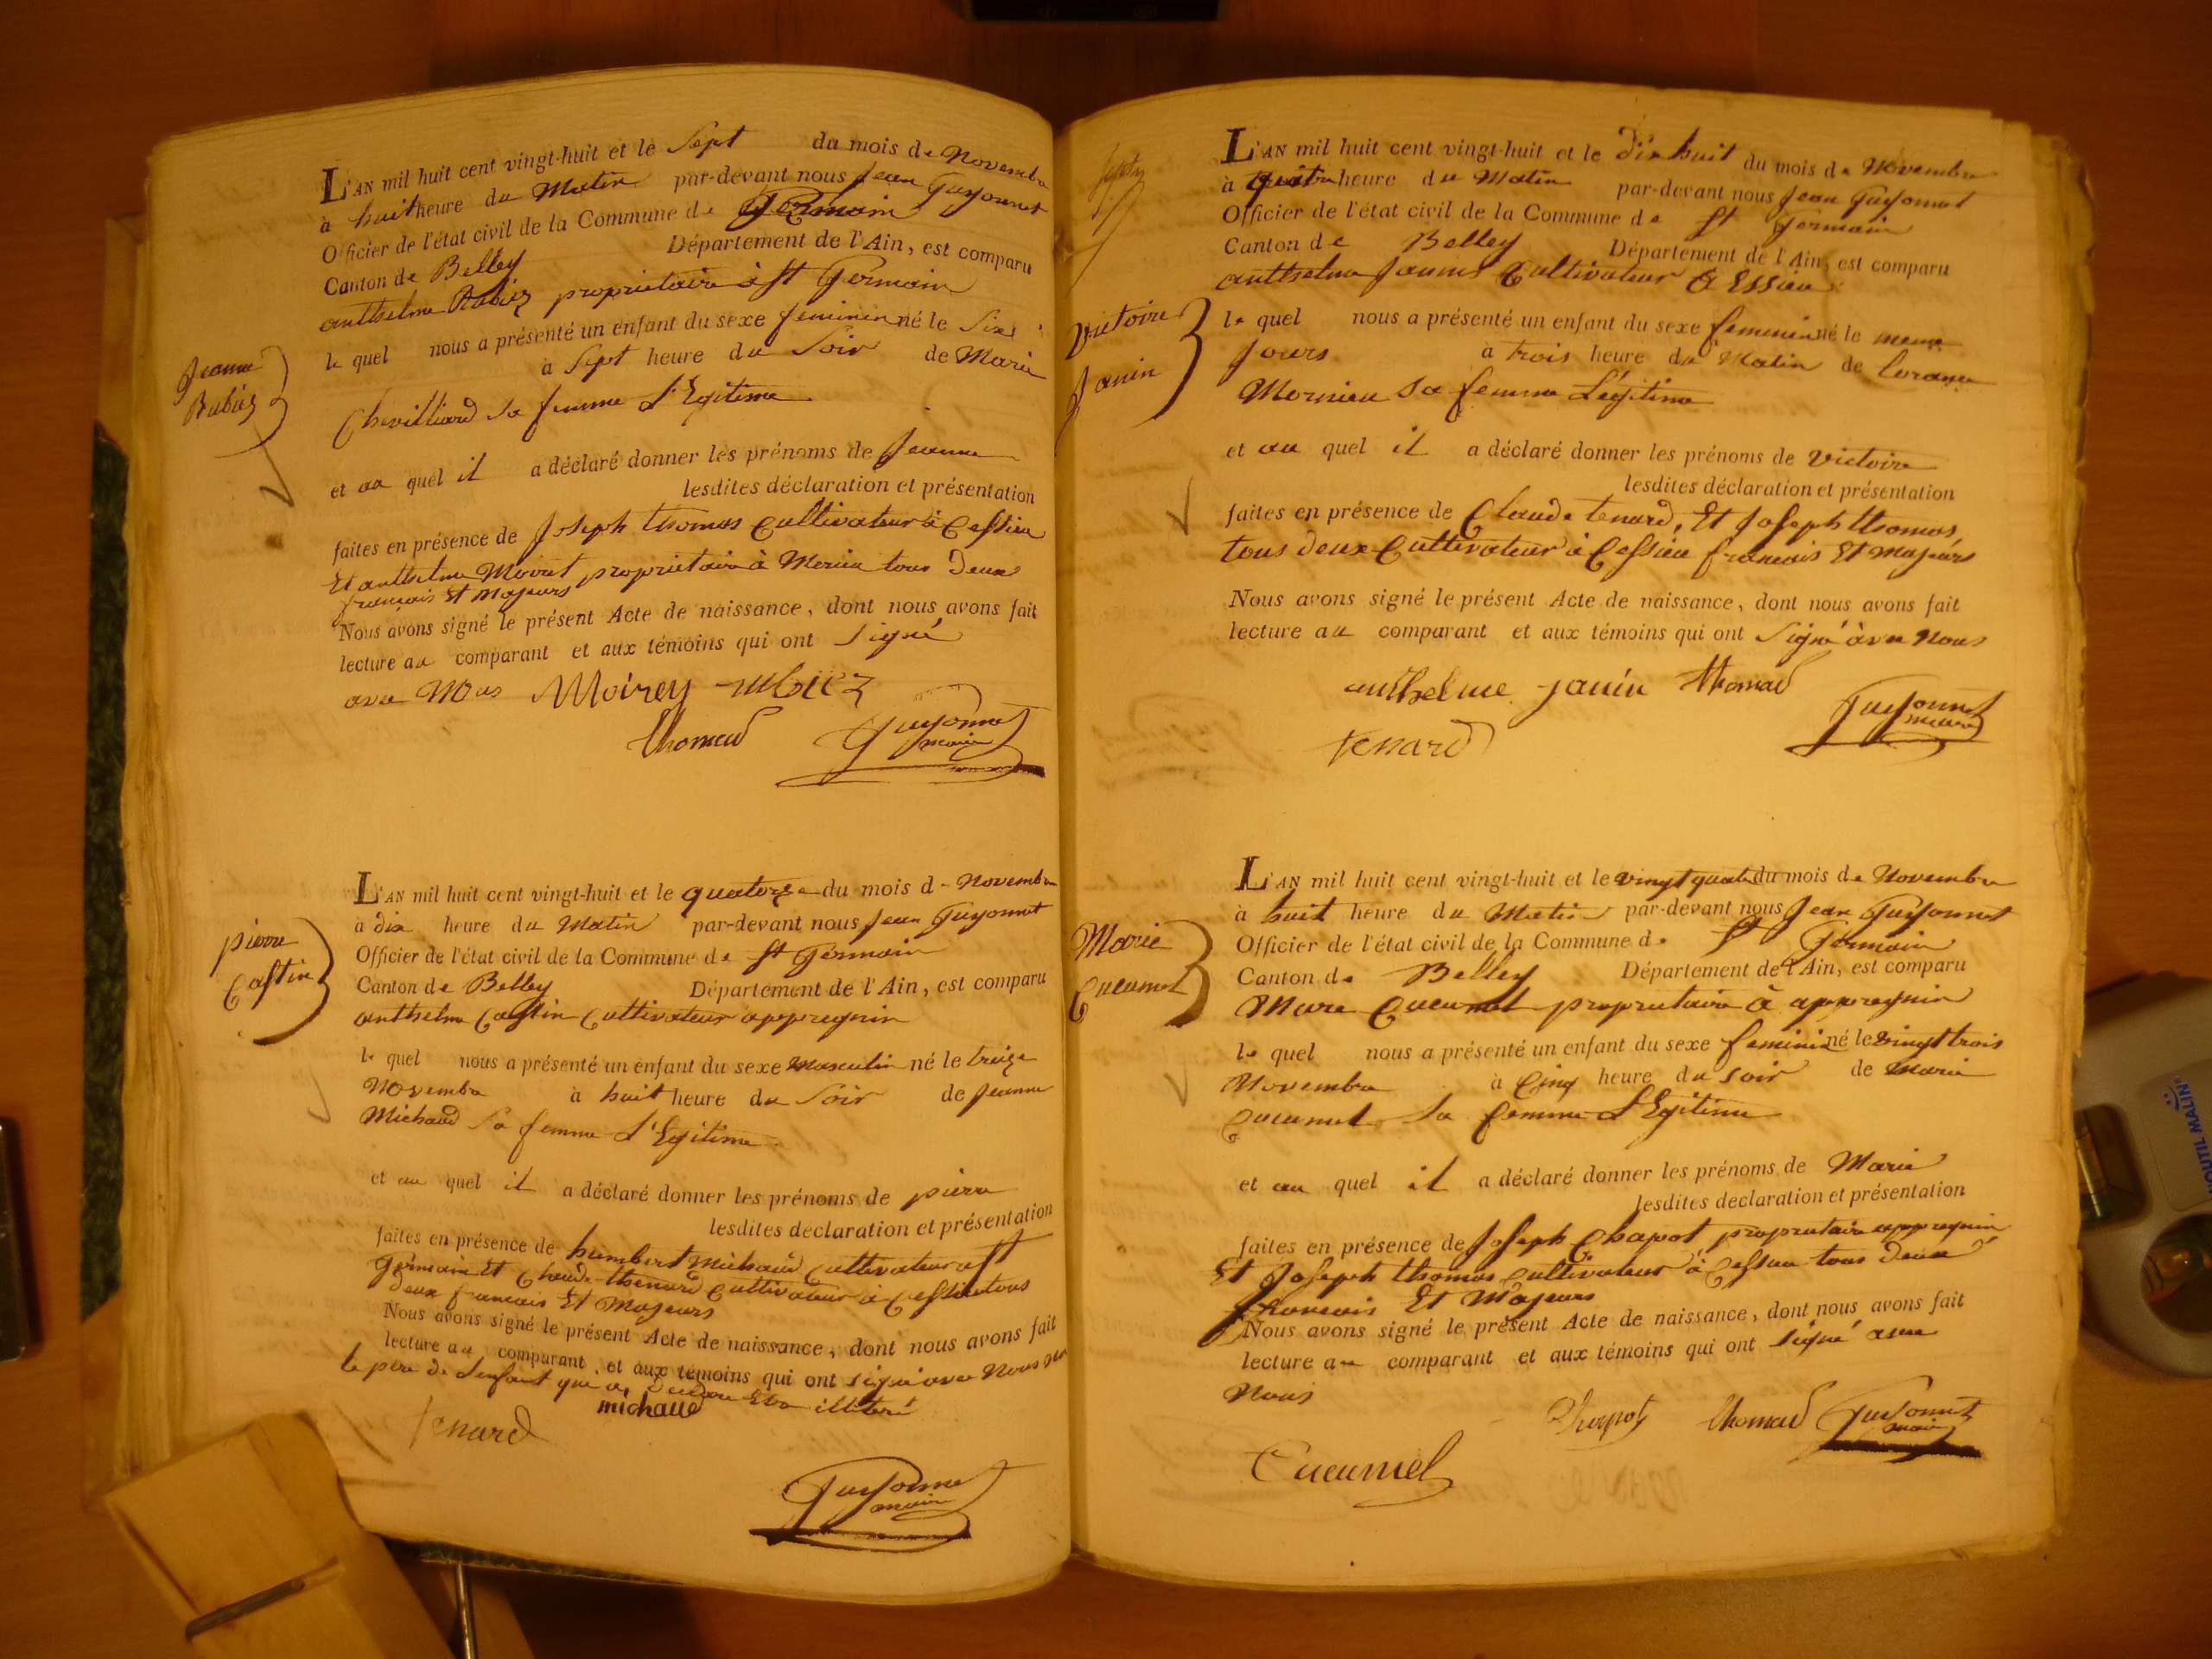 Jeanne
Rubiez
L'AN mil huit cent vingt-huit et le Sept du mois de Novembre
à huit heure du Matin par-devant nous Jean Guyonnet
Officier de l'état civil de la Commune de St Germain
Canton de Belley Département de l'Ain, est comparu
anthelme Rubiez proprietaire à St Germain
le quel nous a présenté un enfant du sexe feminin né le Six
à Sept heure du Soir de Marie
Chevilliard sa femme L'Egitime
et au quel il a déclaré donner les prénoms de Jeanne
lesdites déclaration et présentation
faites en présence de Joseph thomas Cultivateur à Cessieu
Et anthelme Moiret proprietaire à Meriu tous Deux
francais Et Majeurs
Nous avons signé le présent Acte de naissance, dont nous avons fait
lecture au comparant et aux témoins qui ont Signé
avec Nous Moirey rubiez
thomas Guyonnet
maire
pierre
Castin
L'AN mil huit cent vingt-huit et le quatorze du mois d Novembre
à dix heure du Matin par-devant nous Jean Guyonnet
Officier de l'état civil de la Commune de St Germain
Canton de Belley Département de l'Ain, est comparu
anthelme Castin Cultivateur appregnin
le quel nous a présenté un enfant du sexe Masculin né le treize
Novembre à huit heure du Soir de Jeanne
Michaud Sa femme L'Egitime
et au quel il a déclaré donner les prénoms de pierre
lesdites declaration et présentation
faites en présence de humbert Michaud Cultivateur a St
Germain Et Claude thenard Cultivateur à Cessieu tous
deux francais Et Majeurs
Nous avons signé le présent Acte de naissance, dont nous avons fait
lecture au comparant et aux témoins qui ont signé avec Nous
le pere de L'enfant qui a illitéré
michaud
tenard
Guyonnet
maire
Victoire
Janin
L'AN mil huit cent vingt-huit et le dix huit du mois de Novembre
à quatre heure du Matin par-devant nous Jean Guyonnet
Officier de l'état civil de la Commune de St Germain
Canton de Belley Département de l'Ain, est comparu
anthelme Janin Cultivateur à Essieu
le quel nous a présenté un enfant du sexe feminin né le meme
Jours à trois heure du Matin de Lorance
Mornieu Sa femme Légitime
et au quel il a déclaré donner les prénoms de Victoire
lesdites déclaration et présentation
faites en présence de Claude tenard, Et Joseph thomas
tous deux Cultivateur à Cessieu francais Et Majeurs
Nous avons signé le présent Acte de naissance, dont nous avons fait
lecture au comparant et aux témoins qui ont Signé avec Nous
anthelme janin thomas
Guyonnet
maire
tenard
Marie
Cucumel
L'AN mil huit cent vingt-huit et le vingt quatre du mois de Novembre
à huit heure du Matin par-devant nous Jean Guyonnet
Officier de l'état civil de la Commune de St Germain
Canton de Belley Département de l'Ain, est comparu
Marc Cucumel proprietaire à appregnin
le quel nous a présenté un enfant du sexe feminin né le vingt trois
Novembre à Cinq heure du soir de Marie
Cucumel Sa femme L'Egitime
et au quel il a déclaré donner les prénoms de Marie
lesdites declaration et présentation
faites en présence de Joseph Chapot proprietaire appregnin
Et Joseph thomas Cultivateur à Cessieu tous deux
francais Et Majeurs
Nous avons signé le présent Acte de naissance, dont nous avons fait
lecture au comparant et aux témoins qui ont signé avec
Nous
Chapot thomas Guyonnet
maire
Cucumel
OUTIL MALIN